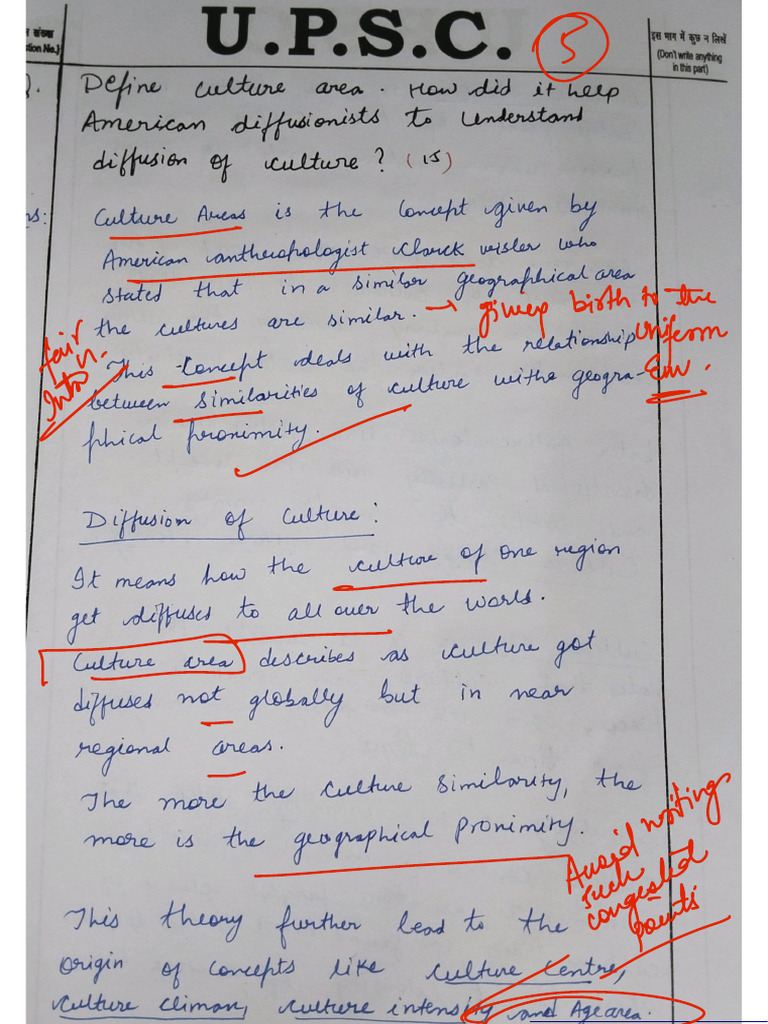 U.P.S.C.
5
संख्या
tion No.)
इस भाग में कुछ न लिखें
(Don't write anything
in this part)
Define culture area. How did it help
American diffusionists to understand
diffusion of culture? (15)
ns:
Culture Areas is the concept given by
American anthropologist Clarck wisler who
stated that in a similar geographical area
the cultures are similar. → gives birth to the
uniform
Env.
fair
Intro
This concept deals with the relationship
between similarities of culture withe geogra-
phical proximity.
Diffusion of Culture:
It means how the culture of one region
get diffuses to all over the world.
Culture area describes as culture got
diffuses not globally but in near
regional areas.
The more the culture similarity, the
more is the geographical proximity.
Avoid writing
such
congested
points
This theory further lead to the
origin of concepts like culture centre,
culture climax, culture intensity and Age area.